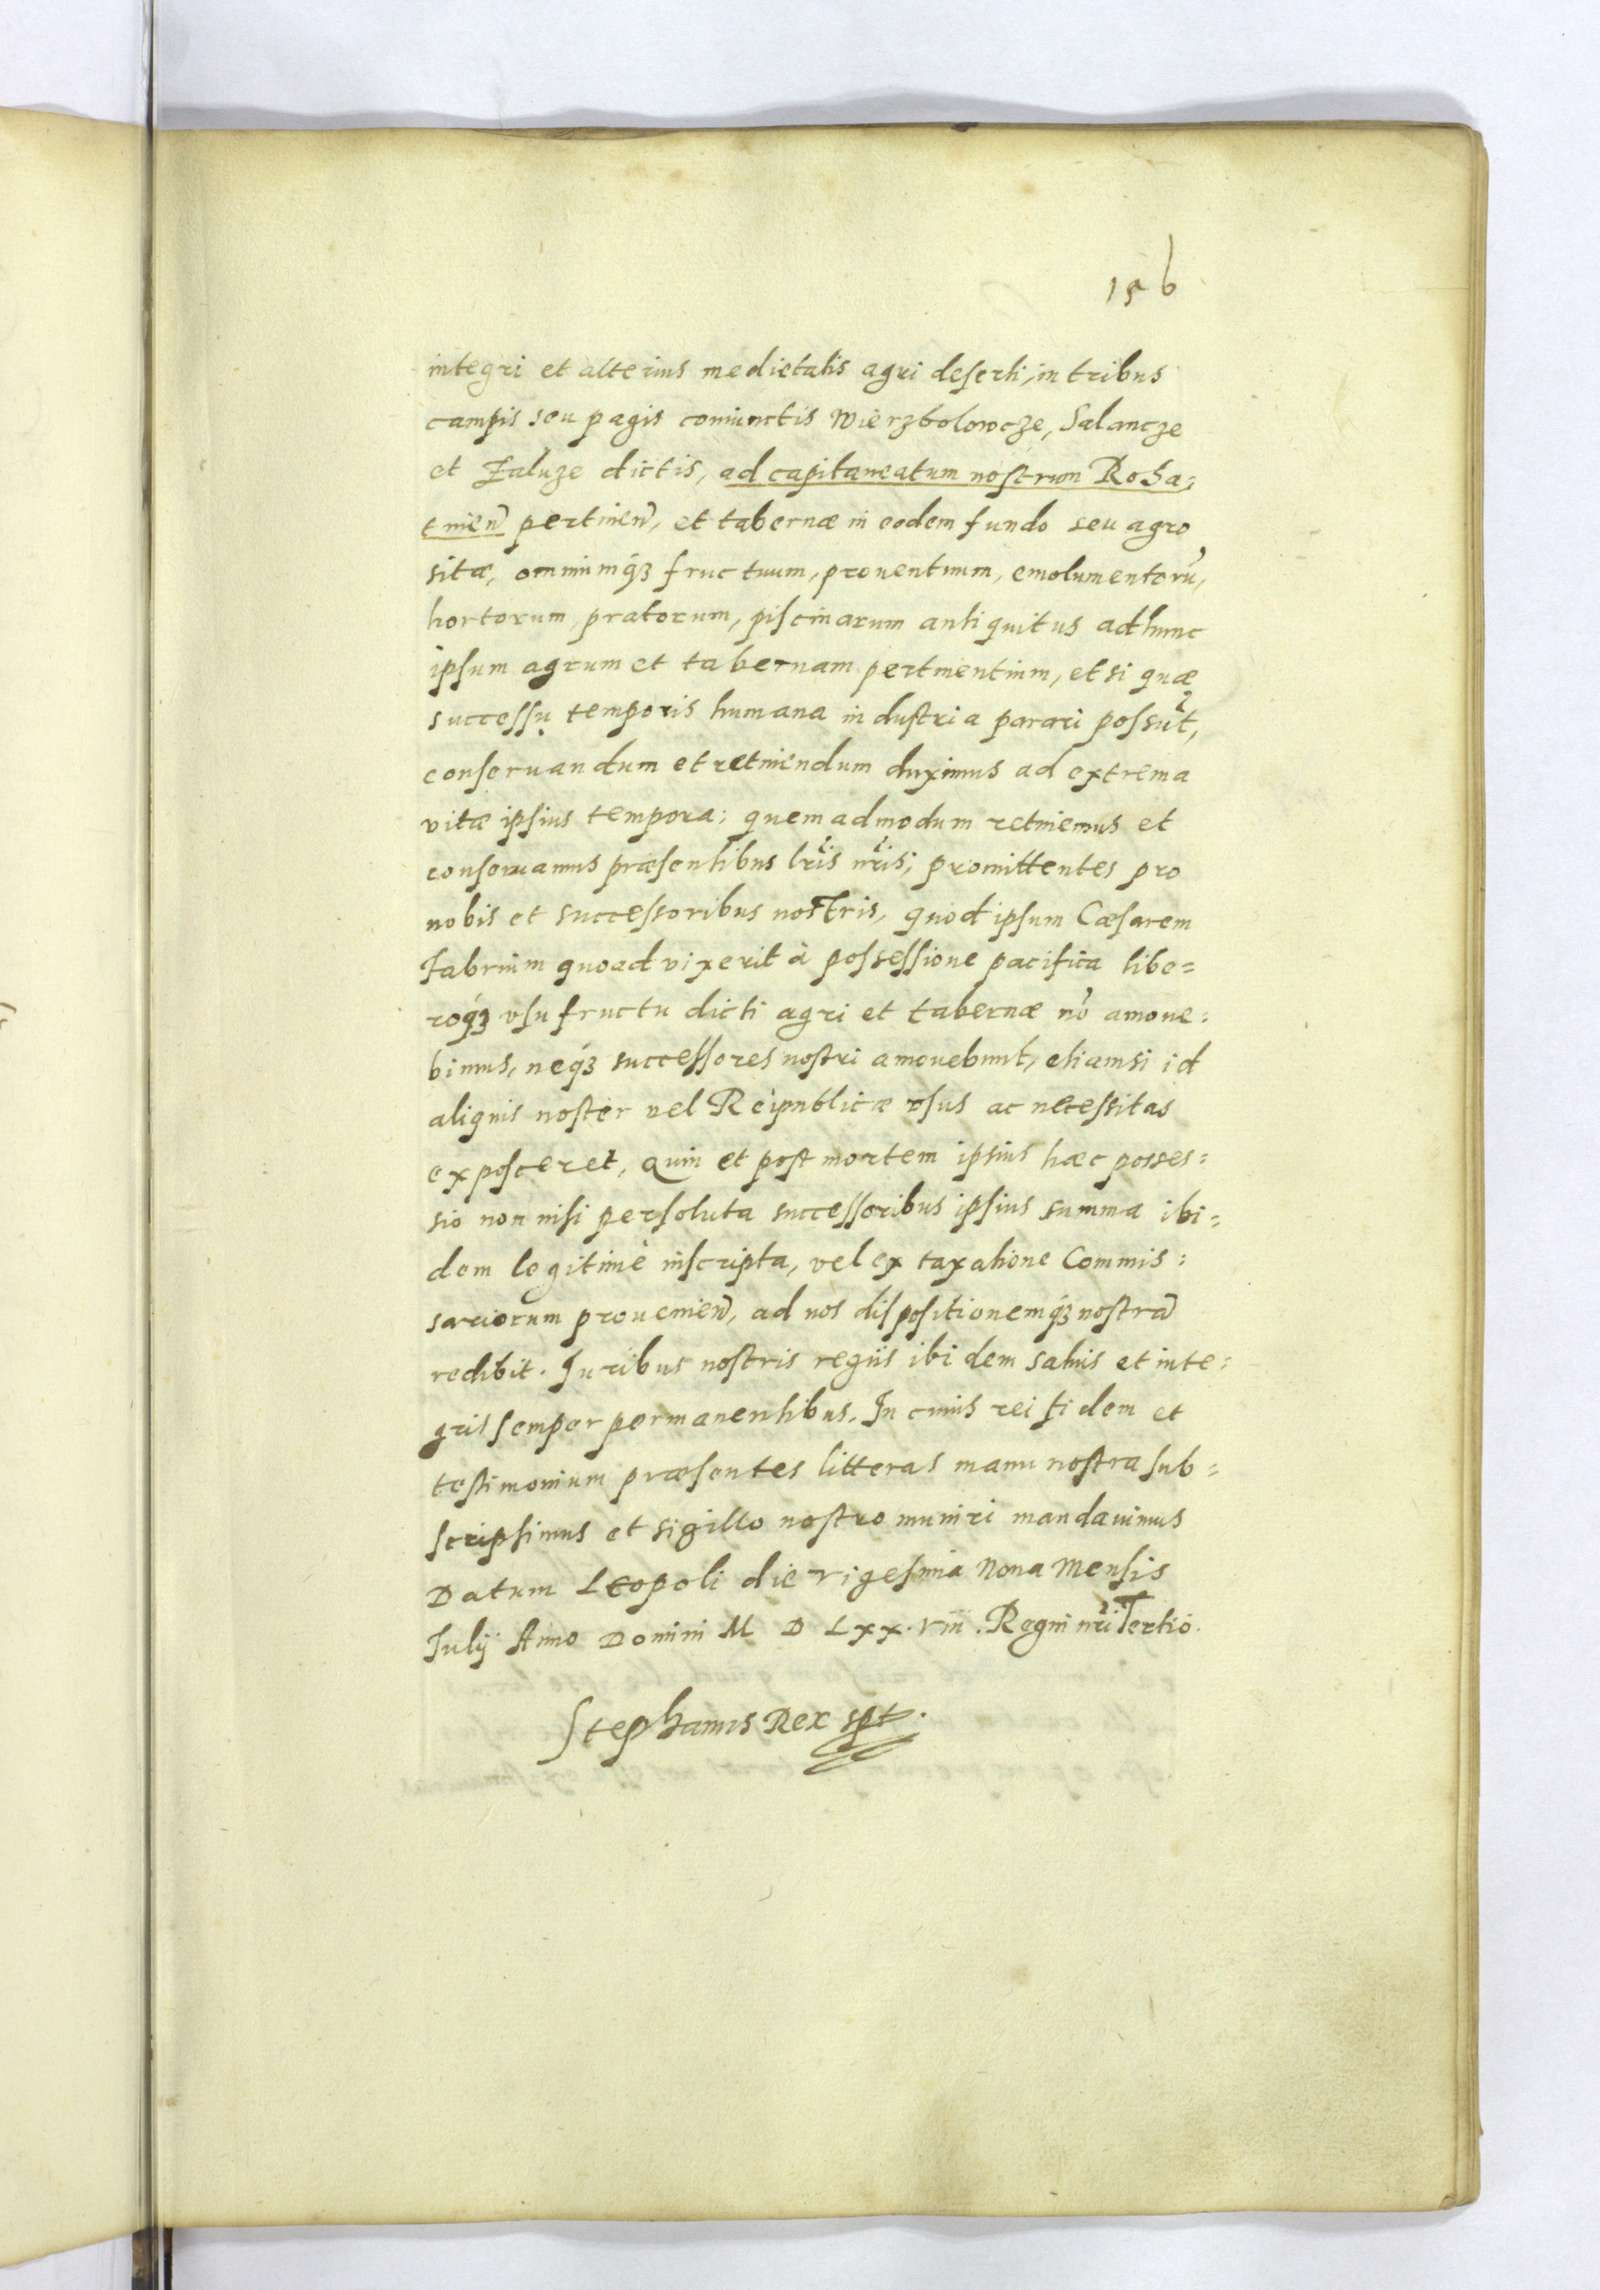 156
integri et alterius medietatis agri deserti, in tribus
campis seu pagis coniunctis Wierzbolowcze, Salancze
et Zaluze dictis, ad capitaneatum nostrum Roha=
tinen̄ pertinen̄, et tabernæ in eodem fundo seu agro
sitæ, omniumq́ꝫ fructuum, prouentuum, emolumentorū,
hortorum, pratorum, piscinarum antiquitus ad hunc
ipsum agrum et tabernam pertinentium, et si quæ
successu temporis humana industria parari possūt,
conseruandum et retinendum duximus ad extrema
vitæ ipsius tempora; quemadmodum retinemus et
conseruamus præsentibus lr̄is nr̄is; promittentes pro
nobis et successoribus nostris, quod ipsum Cæsarem
Fabrium quoad vixerit à possessione pacifica libe=
roq́ꝫ vsufructu dicti agri et tabernæ nō amoue=
bimus, neq́ꝫ successores nostri amouebunt, etiamsi id
aliquis noster vel Reipublicæ vsus ac necessitas
exposceret, Quin et post mortem ipsius hæc posses=
sio non nisi persoluta successoribus ipsius summa ibi=
dem legitimè inscripta, vel ex taxatione Commis=
sariorum prouenien̄, ad nos dispositionemq́ꝫ nostrā
redibit. Iuribus nostris regiis ibidem saluis et inte=
gris semper permanentibus. In cuius rei fidem et
testimonium præsentes litteras manu nostra sub=
scripsimus et sigillo nostro muniri mandauimus
Datum Leopoli die vigesima Nona Mensis
Iulÿ Anno Domini M D Lxx.viii. Regni nr̄i Tertio.
Stephanus Rex spt.